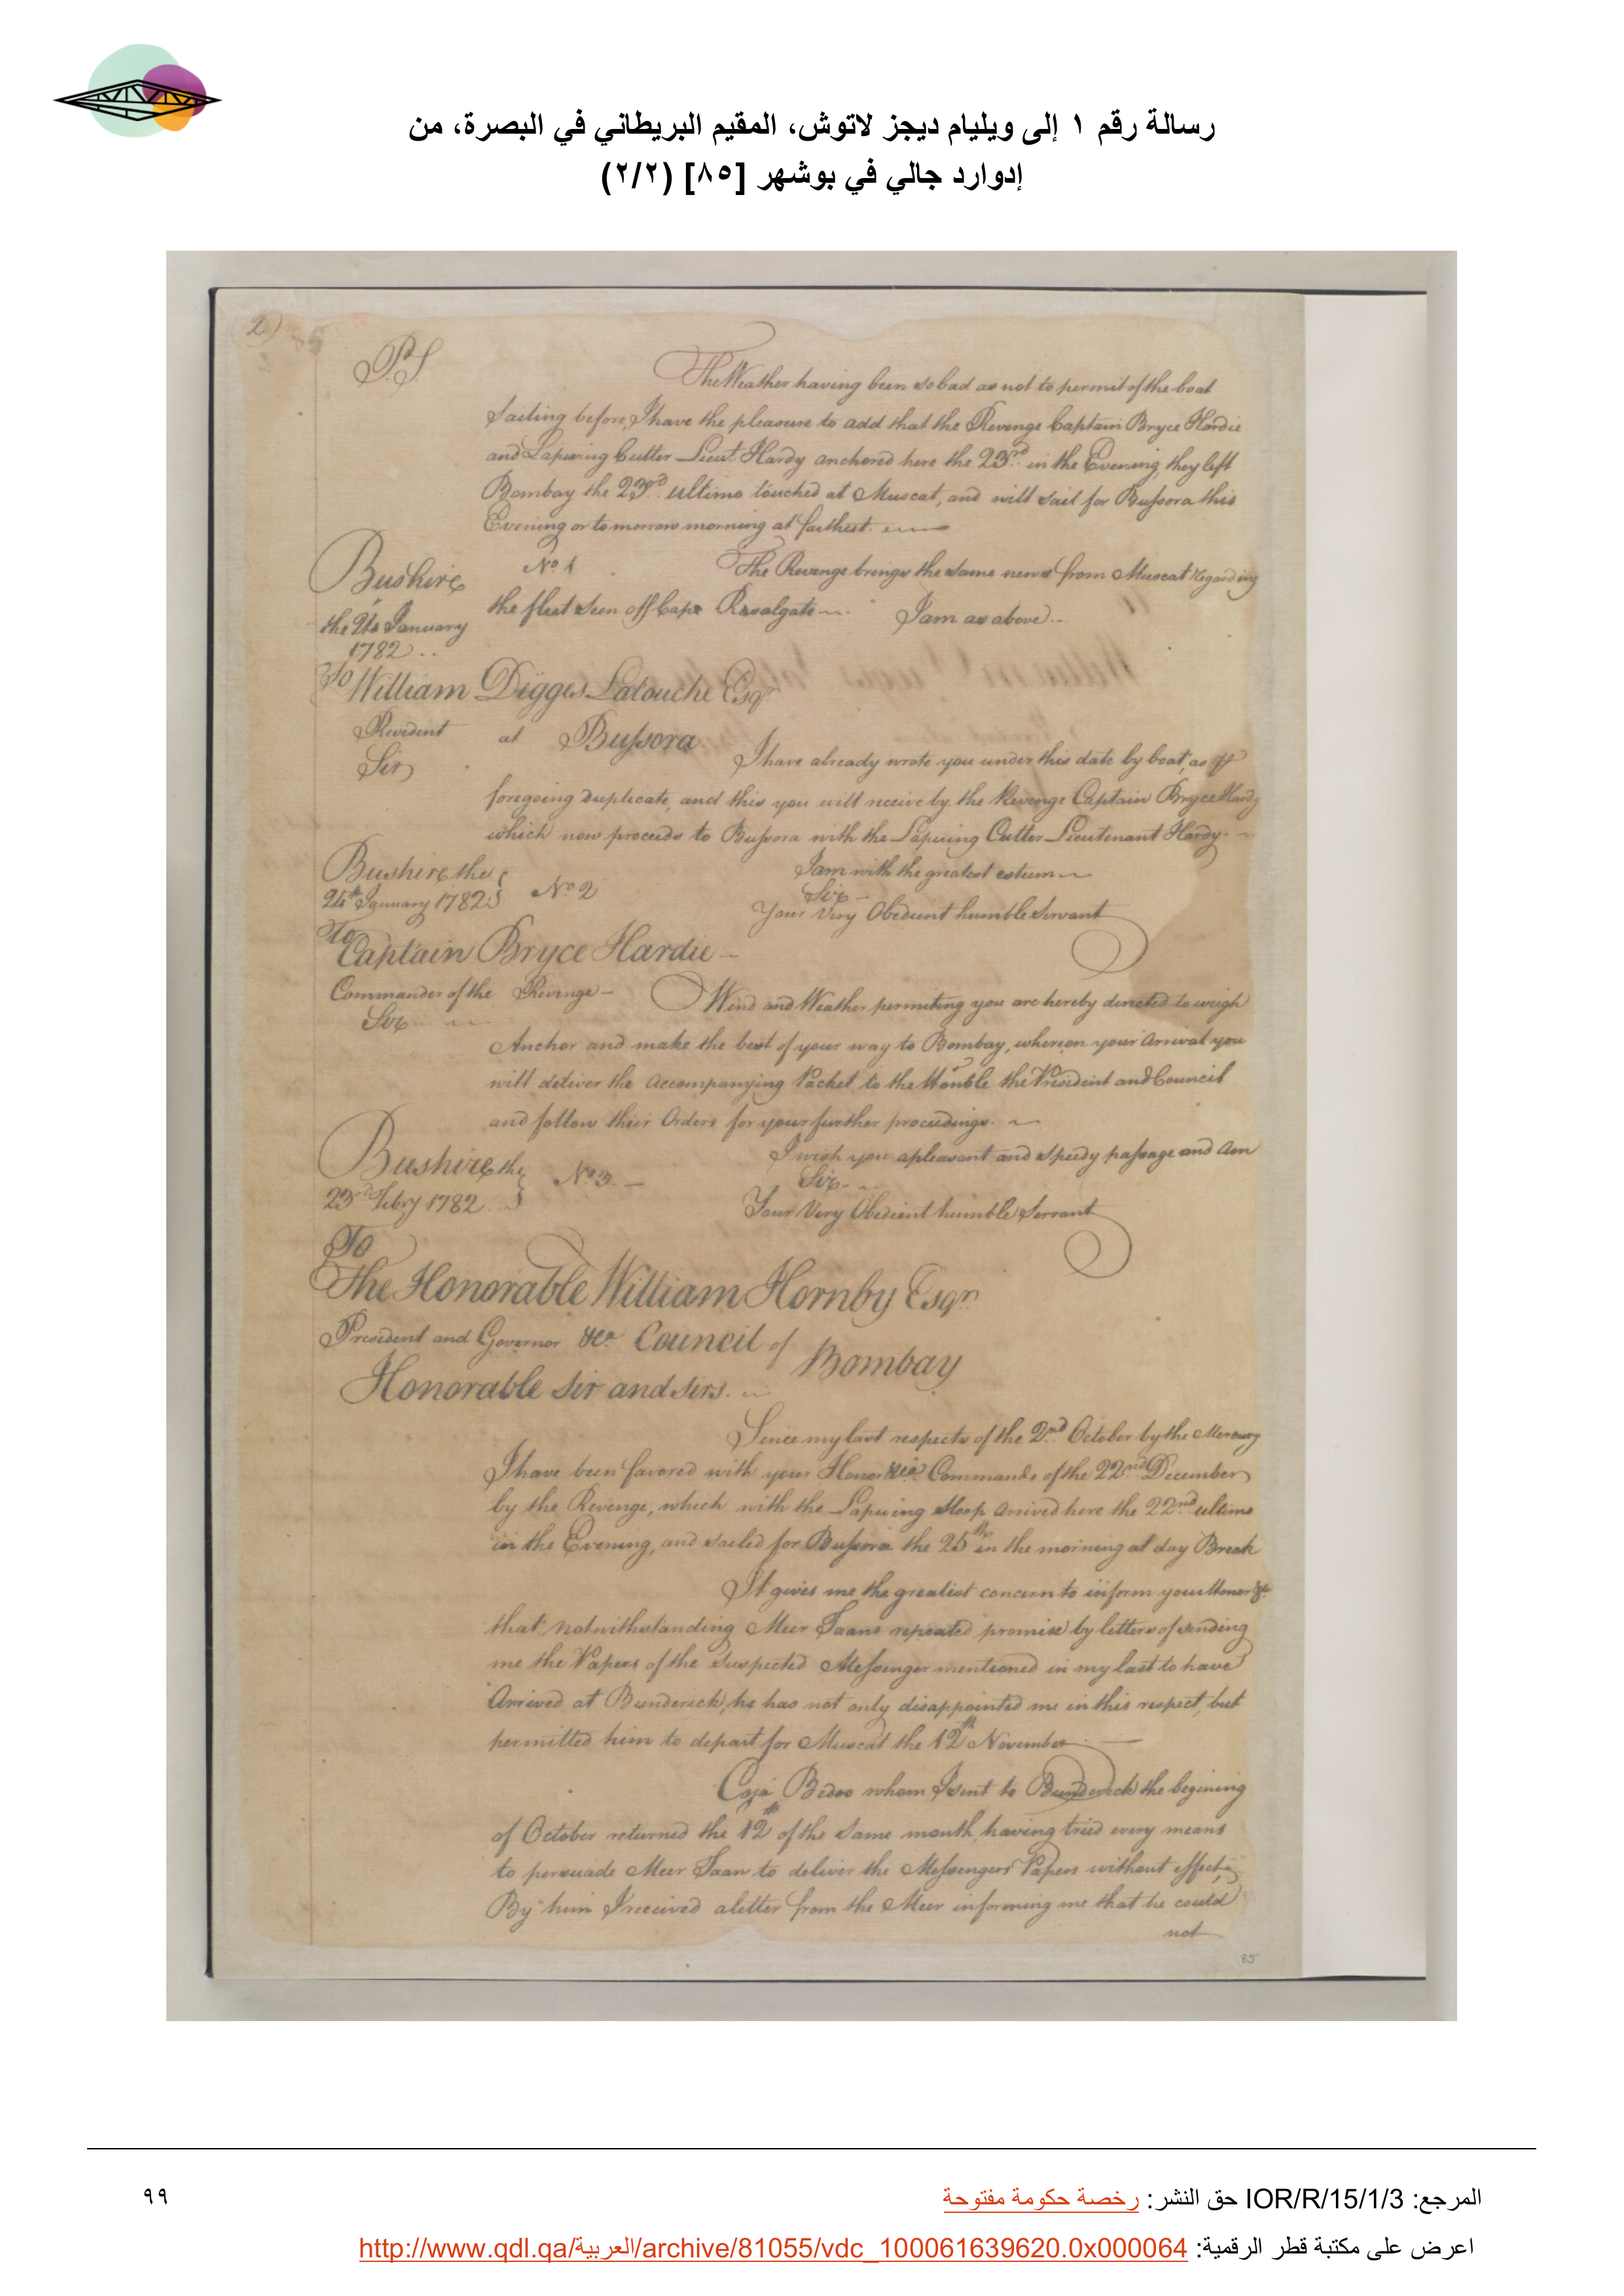 رسالة رقم ١ إلى ويليام ديجز لاتوش، المقيم البريطاني في البصرة، من
إدوارد جالي في بوشهر [٨٥] (٢/٢)
2)
PS
The Weather having been so bad as not to permit of the boat
Sailing before, I have the pleasure to add that the Revenge Captain Bryce Hardie
and Lapwing Cutter Lieut. Hardy anchored here the 23rd in the Evening, they left
Bombay the 23rd ultimo touched at Muscat, and will sail for Bussora this
Evening or tomorrow morning at farthest.
Bushire
the 24 January
1782
No 1
The Revenge brings the same news from Muscat regarding
the fleet seen off Cape Rasalgate. I am as above
To
William Digges Latouche Esqr
Resident at Bussora
Sir
I have already wrote you under this date by boat, as
foregoing duplicate, and this you will receive by the Revenge Captain Bryce Hardy
which now proceeds to Bussora with the Lapwing Cutter Lieutenant Hardy.
I am with the greatest esteem
Bushire the
24th January 1782
No 2
Sir
Your Very Obedient humble Servant
To
Captain Bryce Hardie
Commander of the Revenge
Sir
Wind and Weather permiting you are hereby directed to weigh
Anchor and make the best of your way to Bombay, whereon your Arrival you
will deliver the accompanying Packet to the Honble the President and Council
and follow their Orders for your further proceedings.
I wish you a pleasant and speedy passage and am
Bushire the
23rd Febry 1782
No 3
Sir
Your Very Obedient humble Servant
To
The Honorable William Hornby Esqr
President and Governor &ca Council of Bombay
Honorable Sir and Sirs.
Since my last respects of the 2nd October by the Mercury
I have been favored with your Honor &ca Commands of the 22nd December
by the Revenge, which with the Lapwing Sloop arrived here the 22nd ultimo
in the Evening, and sailed for Bussora the 25th in the morning at day Break
It gives me the greatest concern to inform your Honor &ca
that notwithstanding Meer Jaans repeated promise by letters of sending
me the Papers of the Suspected Messenger mentioned in my last to have
Arrived at Bunderick, he has not only disappointed me in this respect, but
permitted him to depart for Muscat the 12th November
Coja Bedoo whom I sent to Bunderick the begining
of October returned the 12th of the same month, having tried every means
to persuade Meer Jaan to deliver the Messengers Papers without effect,
By him I received a letter from the Meer informing me that he could
not
85
المرجع: IOR/R/15/1/3 حق النشر: رخصة حكومة مفتوحة
٩٩
اعرض على مكتبة قطر الرقمية: http://www.qdl.qa/العربية/archive/81055/vdc_100061639620.0x000064